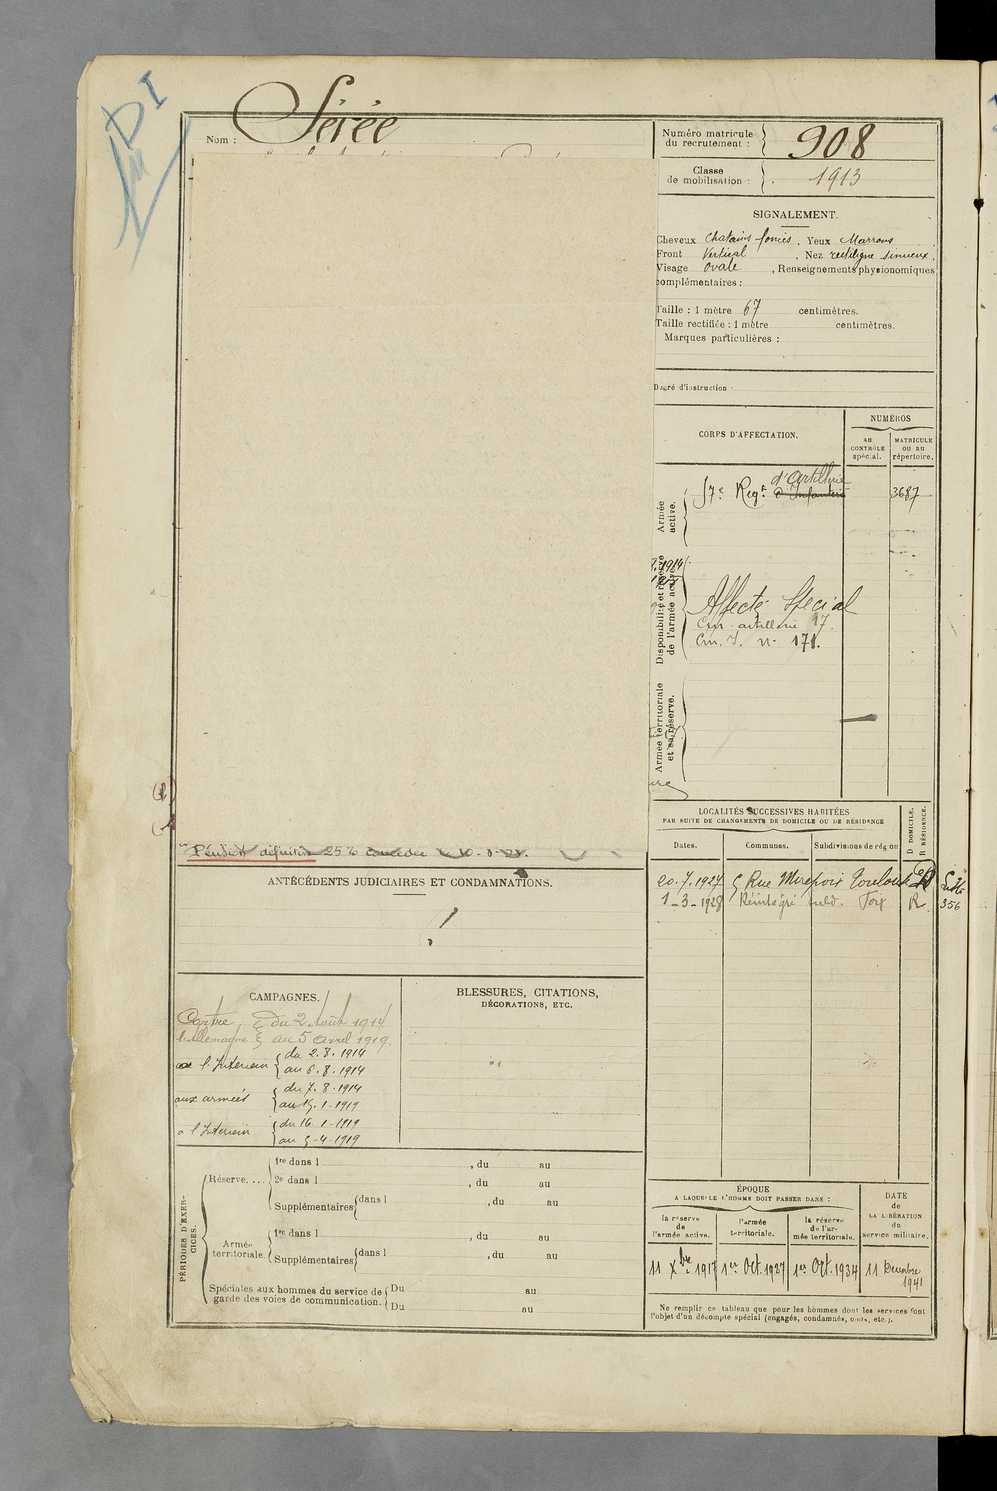 DI
Nom : Sérée
Numéro matricule
du recrutement : 908
Classe
de mobilisation : 1913
SIGNALEMENT.
Cheveux Chatains foncés, Yeux Marrons
Front Vertical, Nez rectiligne sinueux,
Visage ovale, Renseignements physionomiques
complémentaires :
Taille : 1 mètre 67 centimètres.
Taille rectifiée : 1 mètre centimètres.
Marques particulières :
Degré d'instruction
CORPS D'AFFECTATION.
NUMÉROS
au
CONTRÔLE
spécial.
MATRICULE
OU AU
répertoire.
Armée
active.
d'Artillerie
57e Regt d'Infanterie 3687
Disponibilité et réserve
de l'armée active
Affecté Spécial
Cm. artillerie 17
Cm. I. n° 171.
Armée territoriale
et sa réserve.
(2)
Pension définitive 25% concédée
ANTÉCÉDENTS JUDICIAIRES ET CONDAMNATIONS.
CAMPAGNES.
Contre du 2 Août 1914
l'Allemagne au 5 avril 1919.
a l'Interieur du 2.8.1914
au 6.8.1914
aux armées du 7.8.1914
au 15.1.1919
a l'Interieur du 16-1-1919
au 5-4-1919
BLESSURES, CITATIONS,
DÉCORATIONS, ETC.
LOCALITÉS SUCCESSIVES HABITÉES
PAR SUITE DE CHANGEMENTS DE DOMICILE OU DE RÉSIDENCE
D DOMICILE.
R RÉSIDENCE.
Dates. Communes. Subdivisions de région
20.7.1927 5 Rue Mirepoix Toulouse R
1-3-1928 Réintégré subd. Foix R
356
PÉRIODES D'EXERCICES.
Réserve....
1re dans l , du au
2e dans l , du au
Supplémentaires dans l , du au
Armée
territoriale.
1re dans l , du au
Supplémentaires dans l , du au
Spéciales aux hommes du service de
garde des voies de communication.
Du au
Du au
ÉPOQUE
A LAQUELLE L'HOMME DOIT PASSER DANS :
la réserve
de
l'armée active.
l'armée
territoriale.
la réserve
de l'ar-
mée territoriale.
DATE
de
LA LIBÉRATION
du
service militaire.
11 Xbre 1917 1er Oct. 1927 1er Oct. 1934 11 Decembre
1941
Ne remplir ce tableau que pour les hommes dont les services font
l'objet d'un décompte spécial (engagés, condamnés, omis, etc.).